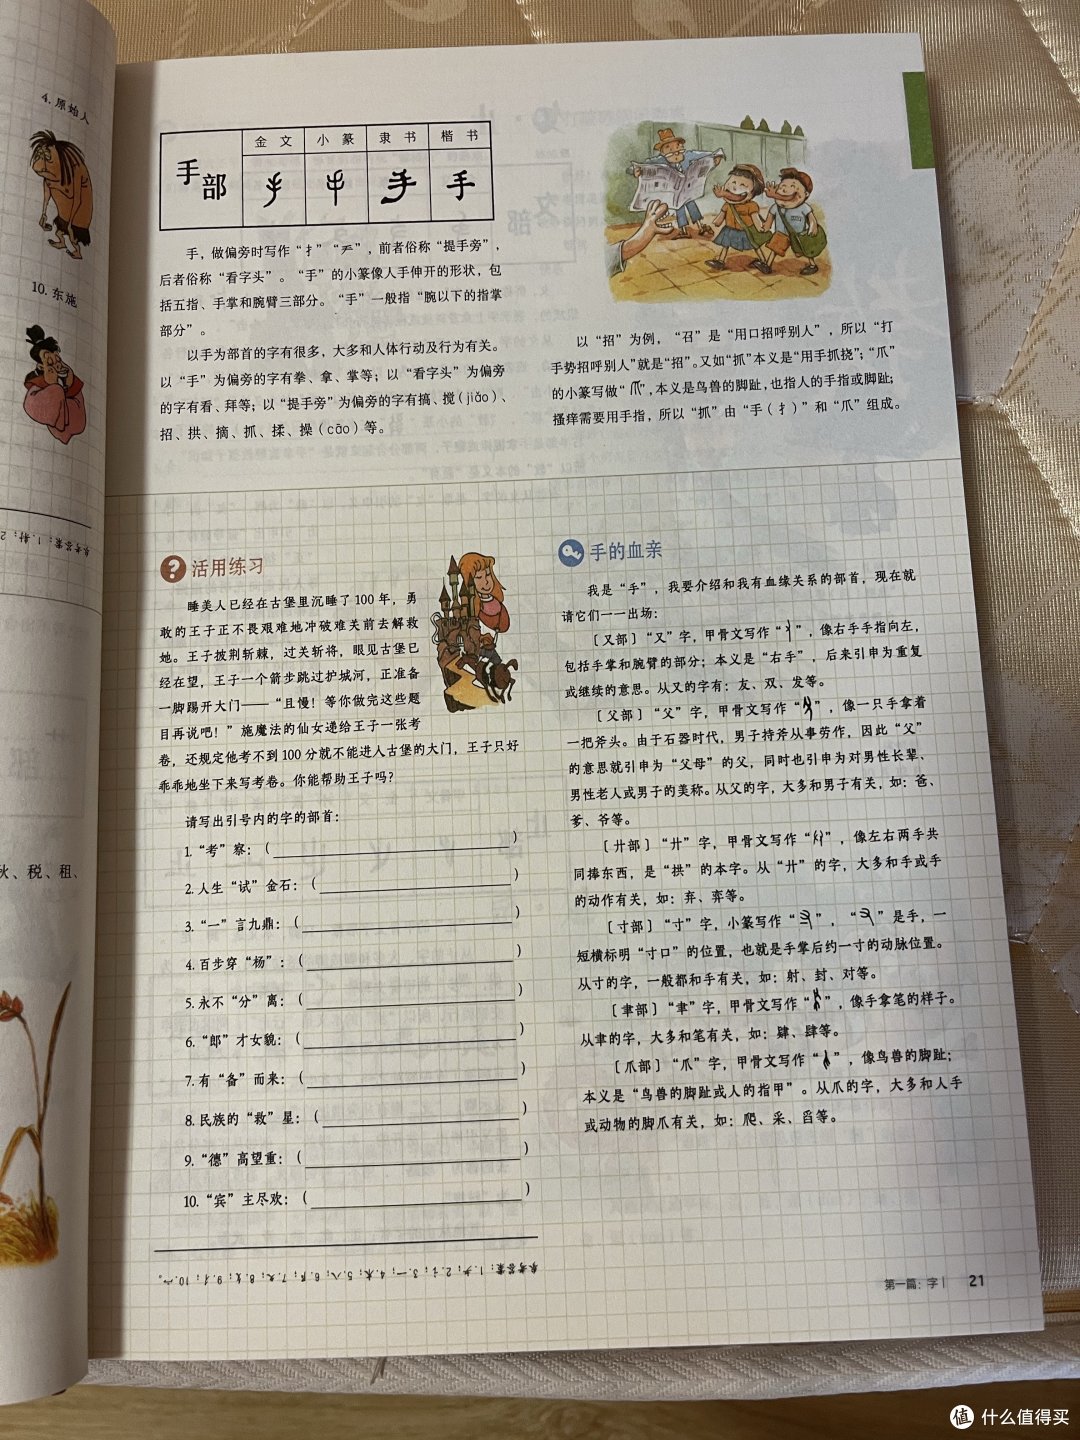 4. 原始人
10. 东施
秋、税、租、
手部
金文 小篆 隶书 楷书
手
手，做偏旁时写作“扌”“龵”，前者俗称“提手旁”，
后者俗称“看字头”。“手”的小篆像人手伸开的形状，包
括五指、手掌和腕臂三部分。“手”一般指“腕以下的指掌
部分”。
以手为部首的字有很多，大多和人体行动及行为有关。
以“手”为偏旁的字有拳、拿、掌等；以“看字头”为偏旁
的字有看、拜等；以“提手旁”为偏旁的字有搞、搅（jiǎo）、
招、拱、摘、抓、揉、操（cāo）等。
以“招”为例，“召”是“用口招呼别人”，所以“打
手势招呼别人”就是“招”。又如“抓”本义是“用手抓挠”；“爪”
的小篆写做“爪”，本义是鸟兽的脚趾，也指人的手指或脚趾；
搔痒需要用手指，所以“抓”由“手（扌）”和“爪”组成。
? 活用练习
睡美人已经在古堡里沉睡了100年，勇
敢的王子正不畏艰难地冲破难关前去解救
她。王子披荆斩棘，过关斩将，眼见古堡已
经在望，王子一个箭步跳过护城河，正准备
一脚踢开大门——“且慢！等你做完这些题
目再说吧！”施魔法的仙女递给王子一张考
卷，还规定他考不到100分就不能进入古堡的大门，王子只好
乖乖地坐下来写考卷。你能帮助王子吗？
请写出引号内的字的部首：
1.“考”察：（ ）
2.人生“试”金石：（ ）
3.“一”言九鼎：（ ）
4.百步穿“杨”：（ ）
5.永不“分”离：（ ）
6.“郎”才女貌：（ ）
7.有“备”而来：（ ）
8.民族的“救”星：（ ）
9.“德”高望重：（ ）
10.“宾”主尽欢：（ ）
参考答案：1.耂；2.讠；3.一；4.木；5.八；6.阝；7.夂；8.攵；9.彳；10.宀。
手的血亲
我是“手”，我要介绍和我有血缘关系的部首，现在就
请它们一一出场：
〔又部〕“又”字，甲骨文写作“”，像右手手指向左，
包括手掌和腕臂的部分；本义是“右手”，后来引申为重复
或继续的意思。从又的字有：友、双、发等。
〔父部〕“父”字，甲骨文写作“”，像一只手拿着
一把斧头。由于石器时代，男子持斧从事劳作，因此“父”
的意思就引申为“父母”的父，同时也引申为对男性长辈、
男性老人或男子的美称。从父的字，大多和男子有关，如：爸、
爹、爷等。
〔廾部〕“廾”字，甲骨文写作“”，像左右两手共
同捧东西，是“拱”的本字。从“廾”的字，大多和手或手
的动作有关，如：弃、弈等。
〔寸部〕“寸”字，小篆写作“”，“”是手，一
短横标明“寸口”的位置，也就是手掌后约一寸的动脉位置。
从寸的字，一般都和手有关，如：射、封、对等。
〔聿部〕“聿”字，甲骨文写作“”，像手拿笔的样子。
从聿的字，大多和笔有关，如：肄、肆等。
〔爪部〕“爪”字，甲骨文写作“”，像鸟兽的脚趾；
本义是“鸟兽的脚趾或人的指甲”。从爪的字，大多和人手
或动物的脚爪有关，如：爬、采、舀等。
第一篇：字 | 21
值 什么值得买